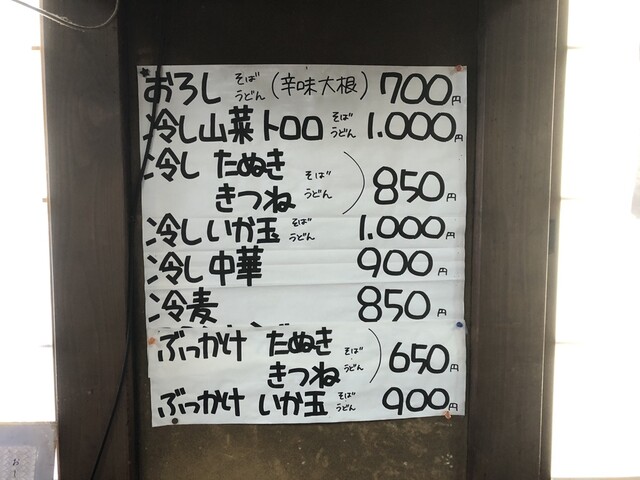 おろし そば うどん (辛味大根) 700円
冷し山菜トロロ そば うどん 1.000円
冷し たぬき きつね そば うどん ) 850円
冷しいか玉 そば うどん 1.000円
冷し中華 900円
冷麦 850円
ぶっかけ たぬき きつね そば うどん ) 650円
ぶっかけ いか玉 そば うどん 900円